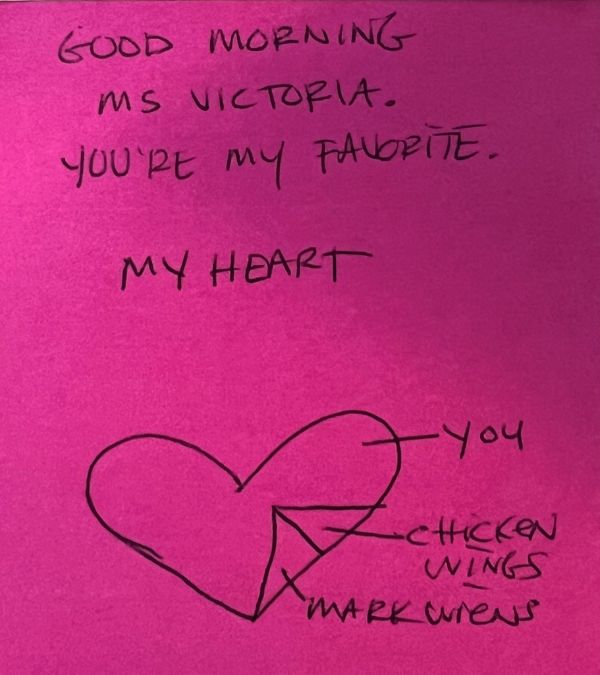 GOOD MORNING
MS VICTORIA.
YOU'RE MY FAVORITE.
MY HEART
YOU
CHICKEN
WINGS
MARK WIENS